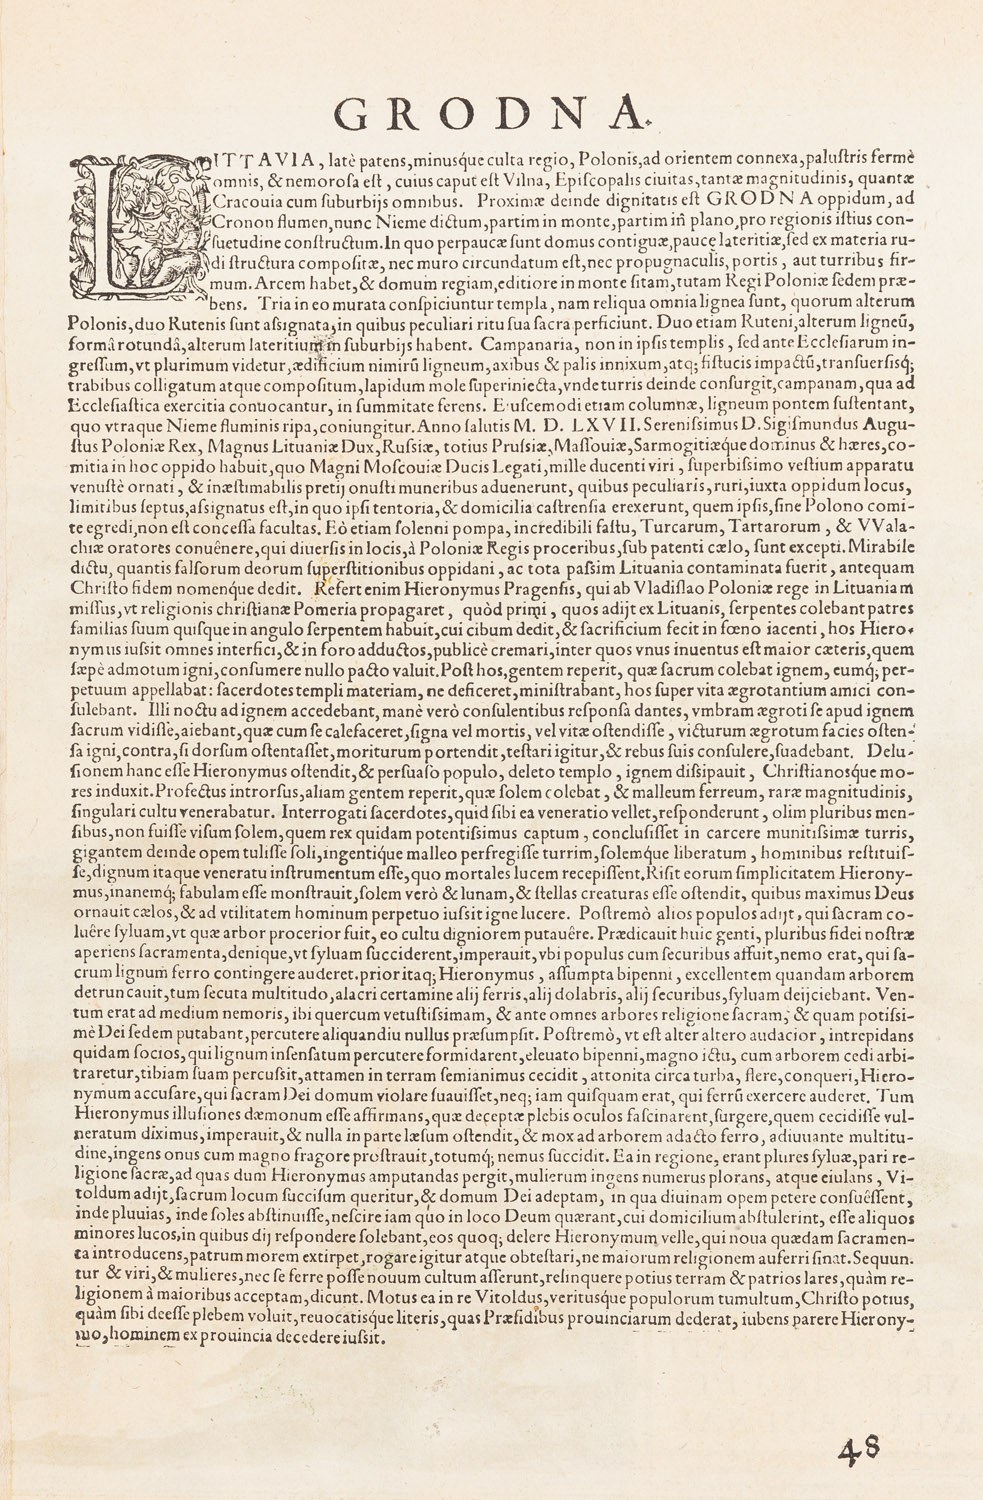 GRODNA.
LITTAVIA, latè patens, minusq́ue culta regio, Polonis, ad orientem connexa, palustris fermè
omnis, & nemorosa est, cuius caput est Vilna, Episcopalis ciuitas, tantæ magnitudinis, quantæ
Cracouia cum suburbijs omnibus. Proximæ deinde dignitatis est GRODNA oppidum, ad
Cronon flumen, nunc Nieme dictum, partim in monte, partim in plano, pro regionis istius con-
suetudine constructum. In quo perpaucæ sunt domus contiguæ, paucę lateritiæ, sed ex materia ru-
di structura compositæ, nec muro circundatum est, nec propugnaculis, portis, aut turribus fir-
mum. Arcem habet, & domum regiam, editiore in monte sitam, tutam Regi Poloniæ sedem præ-
bens. Tria in eo murata conspiciuntur templa, nam reliqua omnia lignea sunt, quorum alterum
Polonis, duo Rutenis sunt assignata, in quibus peculiari ritu sua sacra perficiunt. Duo etiam Ruteni, alterum ligneũ,
formâ rotundâ, alterum lateritium in suburbijs habent. Campanaria, non in ipsis templis, sed ante Ecclesiarum in-
gressum, vt plurimum videtur, ædificium nimirũ ligneum, axibus & palis innixum, atq; fistucis impactũ, transuersisq;
trabibus colligatum atque compositum, lapidum mole superiniecta, vnde turris deinde consurgit, campanam, qua ad
Ecclesiastica exercitia conuocantur, in summitate ferens. Eiuscemodi etiam columnæ, ligneum pontem sustentant,
quo vtraque Nieme fluminis ripa, coniungitur. Anno salutis M. D. LXVII. Serenissimus D. Sigismundus Augu-
stus Poloniæ Rex, Magnus Lituaniæ Dux, Russiæ, totius Prussiæ, Massouiæ, Sarmogitiæque dominus & hæres, co-
mitia in hoc oppido habuit, quo Magni Moscouiæ Ducis Legati, mille ducenti viri, superbissimo vestium apparatu
venustè ornati, & inæstimabilis pretij onusti muneribus aduenerunt, quibus peculiaris, ruri, iuxta oppidum locus,
limitibus septus, assignatus est, in quo ipsi tentoria, & domicilia castrensia erexerunt, quem ipsis, sine Polono comi-
te egredi, non est concessa facultas. Eò etiam solenni pompa, incredibili fastu, Turcarum, Tartarorum, & VVala-
chiæ oratores conuênere, qui diuersis in locis, à Poloniæ Regis proceribus, sub patenti cælo, sunt excepti. Mirabile
dictu, quantis falsorum deorum superstitionibus oppidani, ac tota passim Lituania contaminata fuerit, antequam
Christo fidem nomenq́ue dedit. Refert enim Hieronymus Pragensis, qui ab Vladislao Poloniæ rege in Lituaniam
missus, vt religionis christianæ Pomeria propagaret, quòd primi, quos adijt ex Lituanis, serpentes colebant patres
familias suum quisque in angulo serpentem habuit, cui cibum dedit, & sacrificium fecit in fœno iacenti, hos Hiero-
nymus iussit omnes interfici, & in foro adductos, publicè cremari, inter quos vnus inuentus est maior cæteris, quem
sæpè admotum igni, consumere nullo pacto valuit. Post hos, gentem reperit, quæ sacrum colebat ignem, eumq; per-
petuum appellabat: sacerdotes templi materiam, ne deficeret, ministrabant, hos super vita ægrotantium amici con-
sulebant. Illi noctu ad ignem accedebant, manè verò consulentibus responsa dantes, vmbram ægroti se apud ignem
sacrum vidisse, aiebant, quæ cum se calefaceret, signa vel mortis, vel vitæ ostendisse, victurum ægrotum facies osten-
sa igni, contra, si dorsum ostentasset, moriturum portendit, testari igitur, & rebus suis consulere, suadebant. Delu-
sionem hanc esse Hieronymus ostendit, & persuaso populo, deleto templo, ignem dissipauit, Christianosq́ue mo-
res induxit. Profectus introrsus, aliam gentem reperit, quæ solem colebat, & malleum ferreum, raræ magnitudinis,
singulari cultu venerabatur. Interrogati sacerdotes, quid sibi ea veneratio vellet, responderunt, olim pluribus men-
sibus, non fuisse visum solem, quem rex quidam potentissimus captum, conclusisset in carcere munitissimæ turris,
gigantem deinde opem tulisse soli, ingentiq́ue malleo perfregisse turrim, solemq́ue liberatum, hominibus restituis-
se, dignum itaque veneratu instrumentum esse, quo mortales lucem recepissent. Risit eorum simplicitatem Hierony-
mus, inanemq; fabulam esse monstrauit, solem verò & lunam, & stellas creaturas esse ostendit, quibus maximus Deus
ornauit cælos, & ad vtilitatem hominum perpetuo iussit igne lucere. Postremò alios populos adijt, qui sacram co-
luêre syluam, vt quæ arbor procerior fuit, eo cultu digniorem putauêre. Prædicauit huic genti, pluribus fidei nostræ
aperiens sacramenta, denique, vt syluam succiderent, imperauit, vbi populus cum securibus affuit, nemo erat, qui sa-
crum lignum ferro contingere auderet. prioritaq; Hieronymus, assumpta bipenni, excellentem quandam arborem
detruncauit, tum secuta multitudo, alacri certamine alij ferris, alij dolabris, alij securibus, syluam deijciebant. Ven-
tum erat ad medium nemoris, ibi quercum vetustissimam, & ante omnes arbores religione sacram, & quam potissi-
mè Dei sedem putabant, percutere aliquandiu nullus præsumpsit. Postremò, vt est alter altero audacior, intrepidans
quidam socios, qui lignum insensatum percutere formidarent, eleuato bipenni, magno ictu, cum arborem cedi arbi-
traretur, tibiam suam percussit, attamen in terram semianimus cecidit, attonita circa turba, flere, conqueri, Hiero-
nymum accusare, qui sacram Dei domum violare suauisset, neq; iam quisquam erat, qui ferrũ exercere auderet. Tum
Hieronymus illusiones dæmonum esse affirmans, quæ deceptæ plebis oculos fascinarent, surgere, quem cecidisse vul-
neratum diximus, imperauit, & nulla in parte læsum ostendit, & mox ad arborem adacto ferro, adiuuante multitu-
dine, ingens onus cum magno fragore prostrauit, totumq; nemus succidit. Ea in regione, erant plures syluæ, pari re-
ligione sacræ, ad quas dum Hieronymus amputandas pergit, mulierum ingens numerus plorans, atque eiulans, Vi-
toldum adijt, sacrum locum succisum queritur, & domum Dei adeptam, in qua diuinam opem petere consuêssent,
inde pluuias, inde soles abstinuisse, nescire iam quo in loco Deum quærant, cui domicilium abstulerint, esse aliquos
minores lucos, in quibus dij respondere solebant, eos quoq; delere Hieronymum velle, qui noua quædam sacramen-
ta introducens, patrum morem extirpet, rogare igitur atque obtestari, ne maiorum religionem auferri sinat. Sequun-
tur & viri, & mulieres, nec se ferre posse nouum cultum asserunt, relinquere potius terram & patrios lares, quàm re-
ligionem à maioribus acceptam, dicunt. Motus ea in re Vitoldus, veritusq́ue populorum tumultum, Christo potius,
quàm sibi deesse plebem voluit, reuocatisque literis, quas Præsidibus prouinciarum dederat, iubens parere Hierony-
mo, hominem ex prouincia decedere iussit.
48